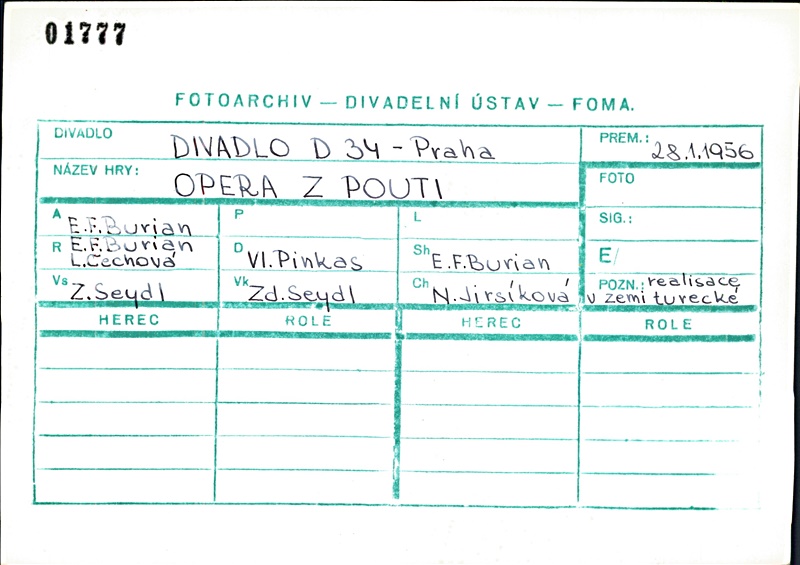 01777
FOTOARCHIV — DIVADELNÍ ÚSTAV — FOMA.
DIVADLO DIVADLO D 34 - Praha PREM.: 28.1.1956
NÁZEV HRY: OPERA Z POUTI FOTO
A E.F.Burian P L SIG.:
R E.F.Burian
L.Čechová D Vl.Pinkas Sh E.F.Burian E/
Vs Z.Seydl Vk Zd.Seydl Ch N.Jirsíková POZN.: realisace
v zemi turecké
HEREC ROLE HEREC ROLE